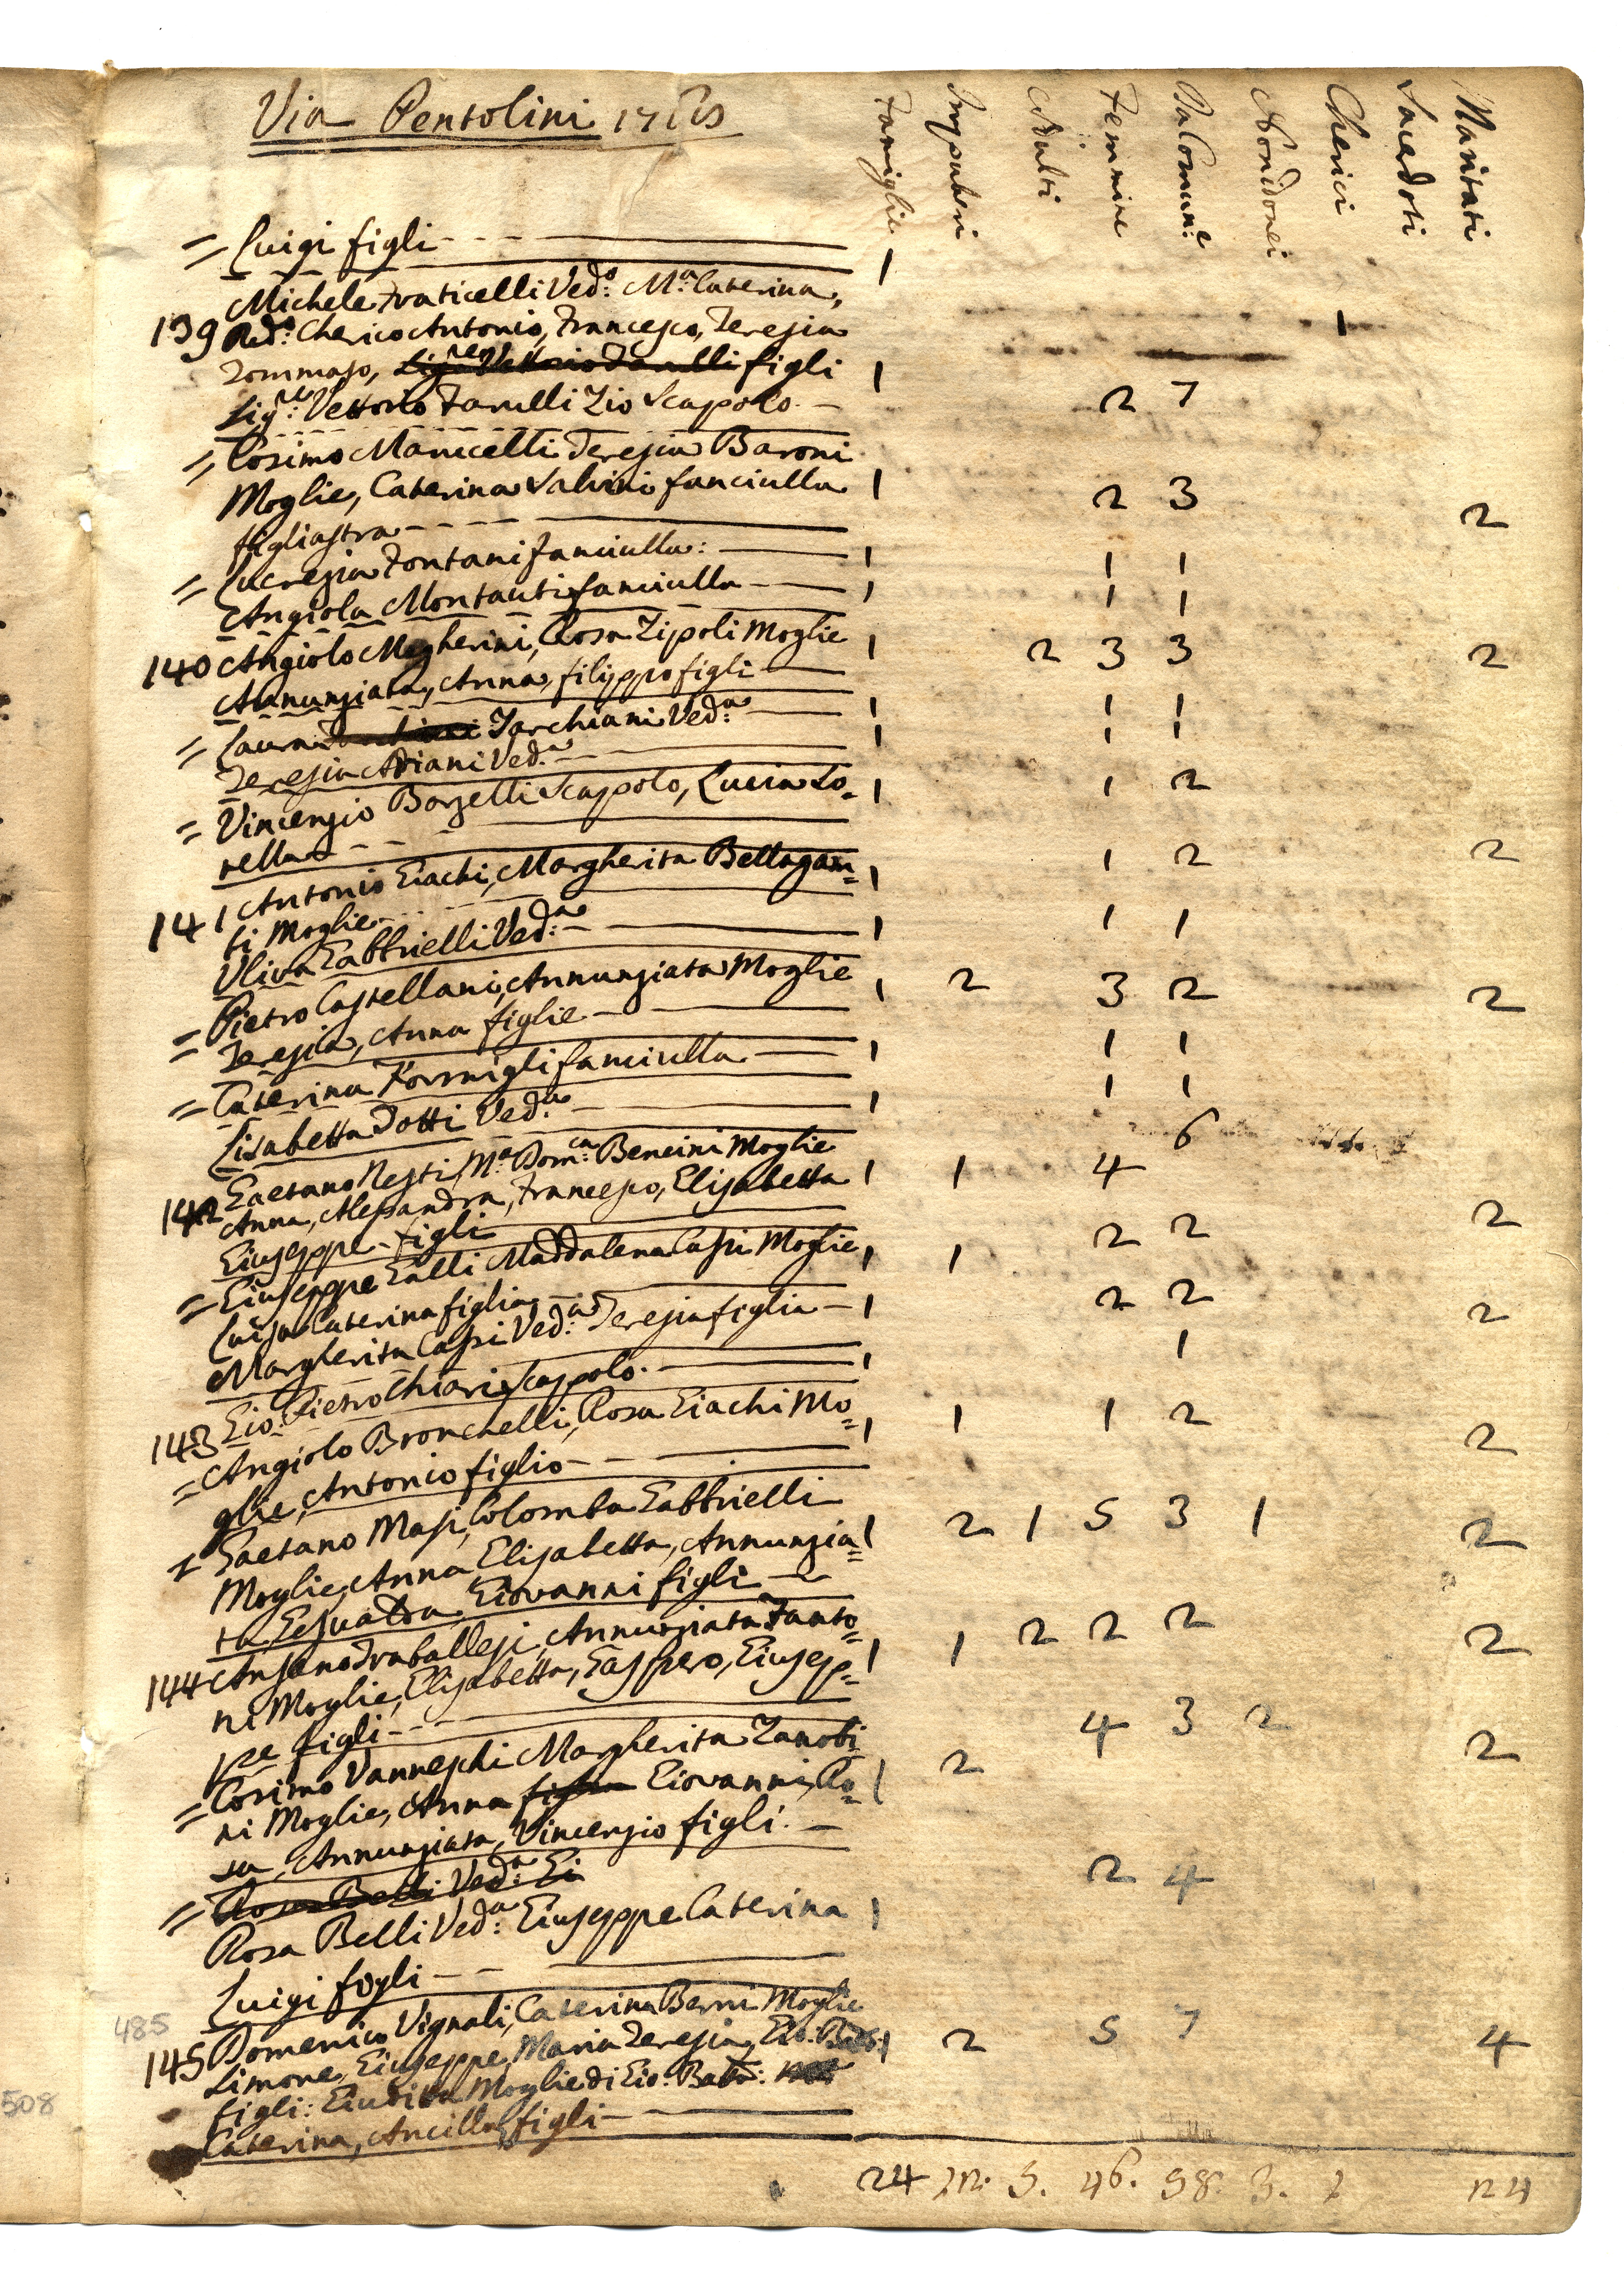 Via Pentolini 17
Famiglie Impuberi Adulti Femmine Da Comun:e Nonidonei Cherici Sacerdoti Maritati
= Luigi figli 1
Michele Fraticelli Ved:o M:a Caterina,
139 Red:o Cherico Antonio, Francesco, Teresia 1
Tommaso, figli 1
Sig:re Vettorio Fanelli Zio Scapolo 2 7
= Cosimo Manicelli Teresia Baroni
Moglie, Caterina Salvini fanciulla 1 2 3 2
figliastra
= Lucrezia Fontani fanciulla: 1 1 1
Angiola Montauti fanciulla 1 1 1
140 Angiolo Megherini, Rosa Zipoli Moglie 1 2 3 3 2
Annunziata, Anna, filippo figli
= Laura Tarchiani Ved:a 1 1 1
Teresia Adiani Ved:a 1 1 1
= Vincenzio Borzelli Scapolo, Lucia So= 1 1 2
rella
141 Antonio Giachi, Margherita Bellagam= 1 1 2 2
bi Moglie
Uliva Gabbrielli Ved:a 1 1 1
= Pietro Castellani, Annunziata Moglie 1 2 3 2 2
= Teresia, Anna figlie
= Caterina Formigli fanciulla 1 1 1
Lisabetta Dotti Ved:a 1 1 1
142 Gaetano Nesti, M:a Dom:ca Bencini Moglie 6
Anna, Alessandra, Francesco, Elisabetta 1 1 4 2
Giuseppe figli
= Giuseppe Galli Maddalena Casini Moglie, 1 1 2 2
Luisa Caterina figlia 2
Margherita Capri Ved:a Teresia figlia 1 2 2
143 Gio: Pietro Chiari Scapolo 1 1
= Angiolo Bronchelli, Rosa Giachi Mo= 1 1 1 2 2
glie, Antonio figlio
Gaetano Masi, Colomba Gabbrielli
Moglie, Anna Elisabetta, Annunzia= 1 2 1 5 3 1 2
ta Giovanni figli
144 Ansano Traballesi, Annunziata Fanto=
ni Moglie, Elisabetta, Gaspero, Giusep= 1 1 2 2 2 2
pe figli
= Cosimo Vanneschi Margherita Zanobi
ni Moglie, Anna Giovanni, Ro= 1 2 4 3 2 2
sa, Annunziata, Vincenzio figli
= Rosa Belli Ved:a Gi
Rosa Belli Ved:a Giuseppe Caterina 1 2 4
Luigi figli
485
145 Domenico Vignali, Caterina Berni Moglie
Simone, Giuseppe, Maria Teresia, Gio: 1 2 5 7 4
figli: Giuditta Moglie di Gio: Batta:
Caterina, Ancilla figli
508
24 12. 5. 46. 58. 3. 1 24